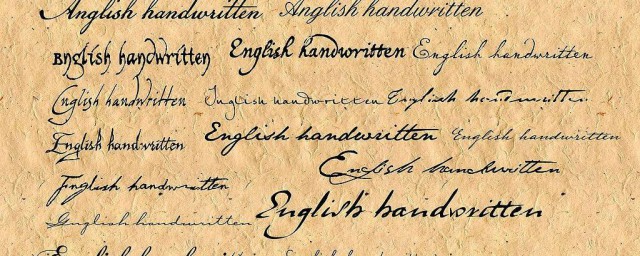 Anglish handwritten Anglish handwritten
English handwritten English handwritten English handwritten
English handwritten Inglish handwritten English handwritten
English handwritten English handwritten English handwritten
English handwritten
English handwritten
Gnglish handwritten English handwritten
English handwritten English handwritten